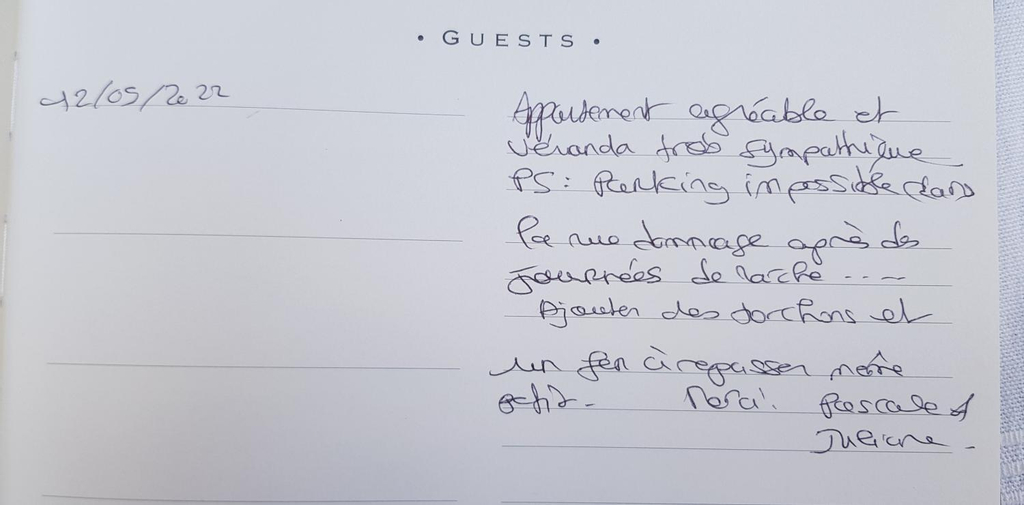 • GUESTS •
12/05/2022
Appartement agréable et
véranda très sympathique
PS: Parking impossible dans
la rue dommage après des
journées de marche ....
Ajouter des torchons et
un fer à repasser même
petit. Merci. Pascale et